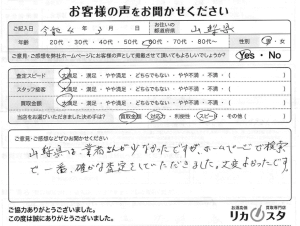 お客様の声をお聞かせください
ご記入日 令和 4 年 3 月 日 お住いの都道府県 山梨県
年齢 20代・30代・40代・50代・60代・70代・80代~ 性別 男・女
ご意見・ご感想を弊社ホームページにお客様の声として掲載させて頂いてもよろしいでしょうか? Yes・No
査定スピード 大満足・満足・やや満足・どちらでもない・やや不満・不満・( )
スタッフ接客 大満足・満足・やや満足・どちらでもない・やや不満・不満・( )
買取金額 大満足・満足・やや満足・どちらでもない・やや不満・不満・( )
当店をお選びいただきました決め手は? 買取金額・対応力・利便性・スピード・その他( )
ご意見・ご感想などぜひお聞かせください
山梨県は業者さんが少なかったですが、ホームページで検索
で一番、確かな査定をしていただきました。大変よかったです。
ご協力ありがとうございました。
この度は誠にありがとうございました。
お酒高価買取専門店
リカスタ